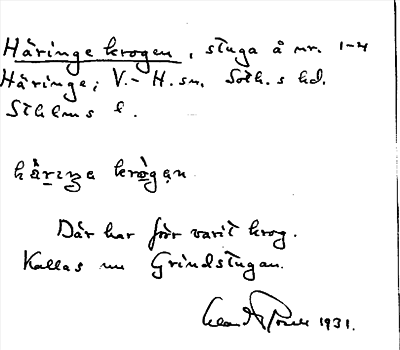 Häringe krogen, stuga å nr. 1-4
Häringe; V.- H. sn. Soth.s hd.
Sthlms l.
häriŋe krògąn
Där har förr varit krog.
Kallas nu Grindstugan.
1931.